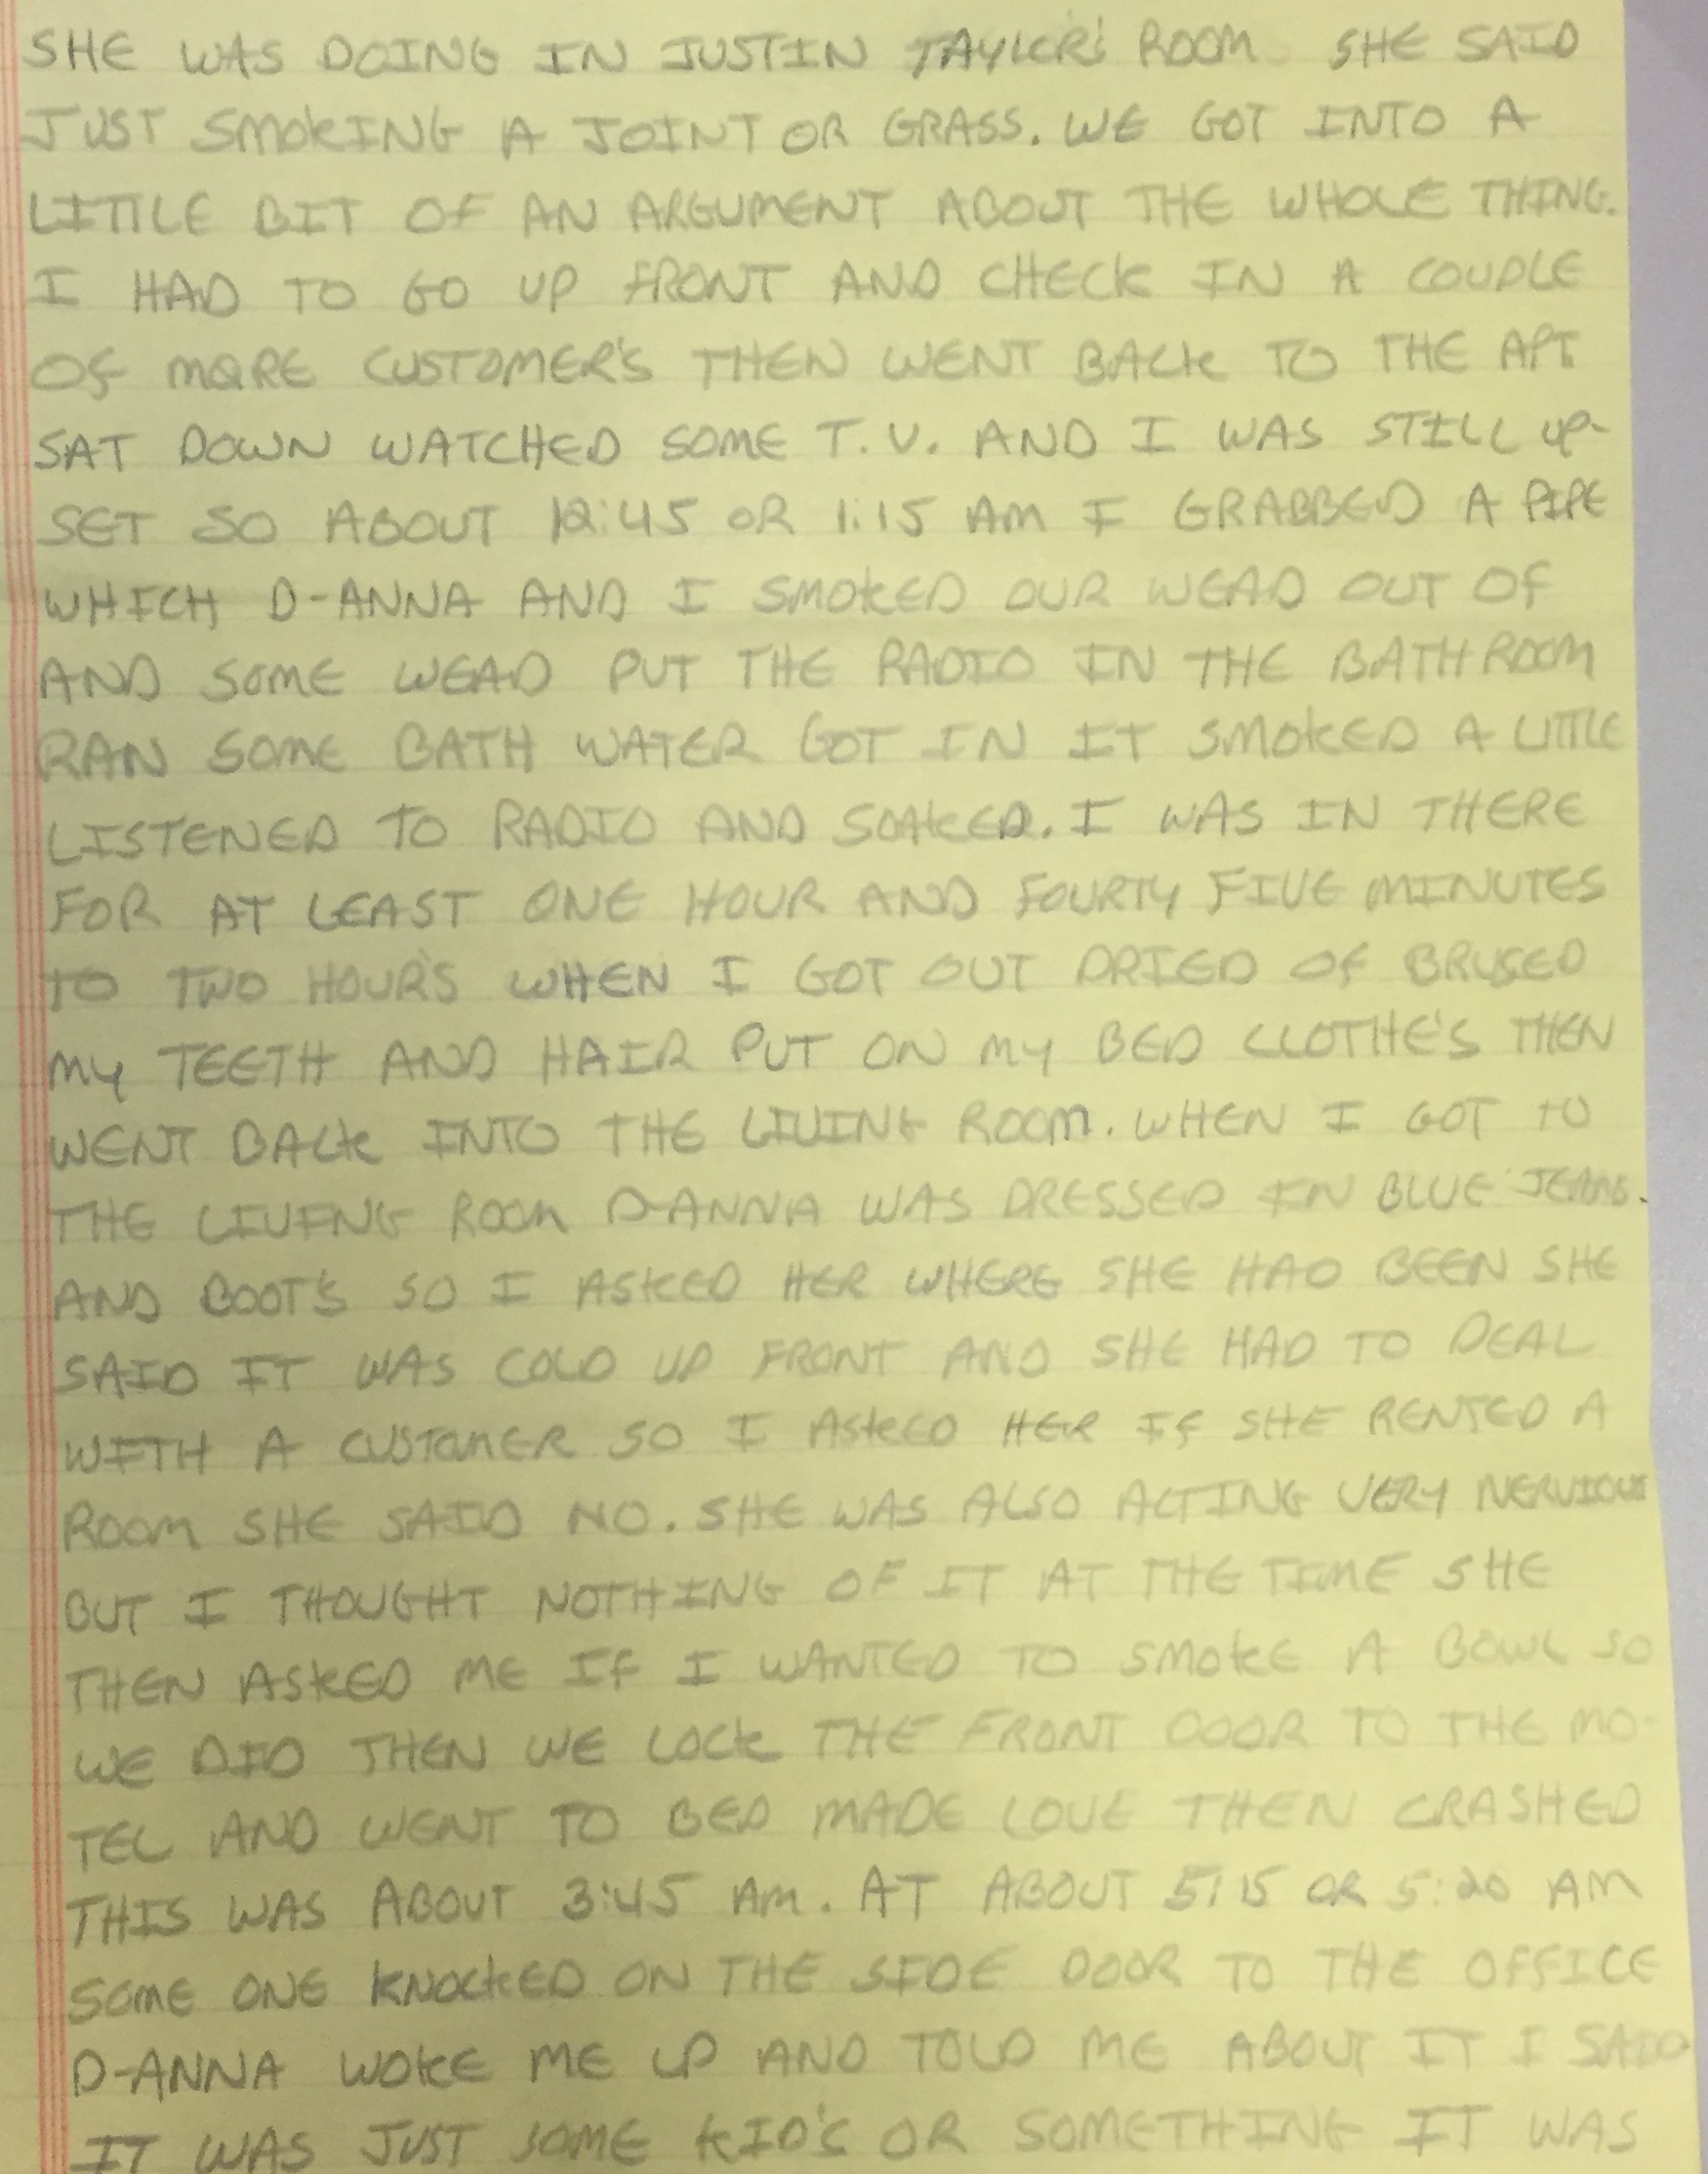 SHE WAS DOING IN JUSTIN TAYLOR'S ROOM SHE SAID
JUST SMOKING A JOINT OR GRASS. WE GOT INTO A
LITTLE BIT OF AN ARGUMENT ABOUT THE WHOLE THING.
I HAD TO GO UP FRONT AND CHECK IN A COUPLE
OF MORE CUSTOMER'S THEN WENT BACK TO THE APT
SAT DOWN WATCHED SOME T.V. AND I WAS STILL UP-
SET SO ABOUT 12:45 OR 1:15 AM I GRABBED A PIPE
WHICH D-ANNA AND I SMOKED OUR WEAD OUT OF
AND SOME WEAD PUT THE RADIO IN THE BATHROOM
RAN SOME BATH WATER GOT IN IT SMOKED A LITTLE
LISTENED TO RADIO AND SOAKED. I WAS IN THERE
FOR AT LEAST ONE HOUR AND FOURTY FIVE MINUTES
TO TWO HOUR'S WHEN I GOT OUT DRIED OF BRUSED
MY TEETH AND HAIR PUT ON MY BED CLOTHE'S THEN
WENT BACK INTO THE LIVING ROOM. WHEN I GOT TO
THE LIVING ROOM D-ANNA WAS DRESSED IN BLUE JEANS.
AND BOOT'S SO I ASKED HER WHERE SHE HAD BEEN SHE
SAID IT WAS COLD UP FRONT AND SHE HAD TO DEAL
WITH A CUSTOMER SO I ASKED HER IF SHE RENTED A
ROOM SHE SAID NO. SHE WAS ALSO ACTING VERY NERVIOUS
BUT I THOUGHT NOTHING OF IT AT THE TIME SHE
THEN ASKED ME IF I WANTED TO SMOKE A BOWL SO
WE DID THEN WE LOCK THE FRONT DOOR TO THE MO-
TEL AND WENT TO BED MADE LOVE THEN CRASHED
THIS WAS ABOUT 3:45 AM. AT ABOUT 5:15 OR 5:20 AM
SOME ONE KNOCKED ON THE SIDE DOOR TO THE OFFICE
D-ANNA WOKE ME UP AND TOLD ME ABOUT IT I SAID
IT WAS JUST SOME KID'S OR SOMETHING IT WAS